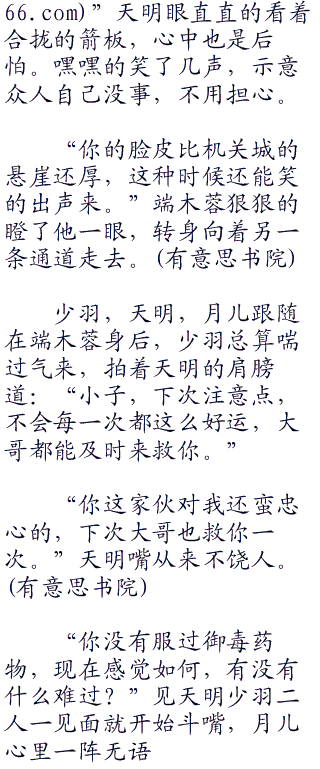 66.com)”天明眼直直的看着
合拢的箭板，心中也是后
怕。嘿嘿的笑了几声，示意
众人自己没事，不用担心。
“你的脸皮比机关城的
悬崖还厚，这种时候还能笑
的出声来。”端木蓉狠狠的
瞪了他一眼，转身向着另一
条通道走去。(有意思书院)
少羽，天明，月儿跟随
在端木蓉身后，少羽总算喘
过气来，拍着天明的肩膀
道：“小子，下次注意点，
不会每一次都这么好运，大
哥都能及时来救你。”
“你这家伙对我还蛮忠
心的，下次大哥也救你一
次。”天明嘴从来不饶人。
(有意思书院)
“你没有服过御毒药
物，现在感觉如何，有没有
什么难过？”见天明少羽二
人一见面就开始斗嘴，月儿
心里一阵无语